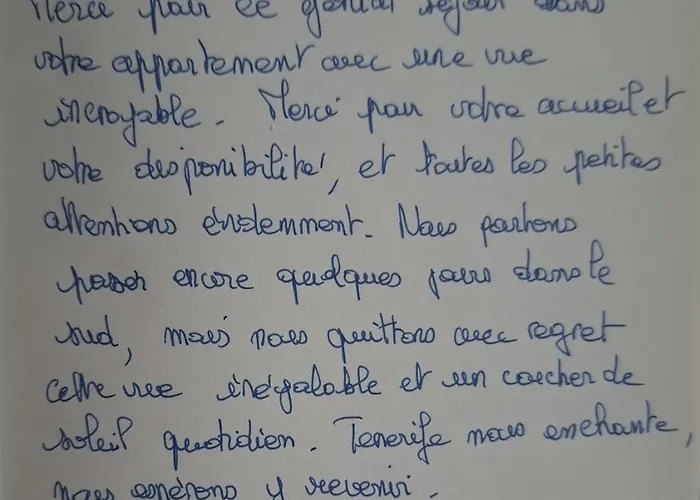 Merci pour ce génial séjour dans
votre appartement avec une vue
incroyable. Merci pour votre accueil et
votre disponibilité, et toutes les petites
attentions évidemment. Nous partons
passer encore quelques jours dans le
sud, mais nous quittons avec regret
cette vue inégalable et un coucher de
soleil quotidien. Tenerife nous enchante,
nous espérons y revenir.